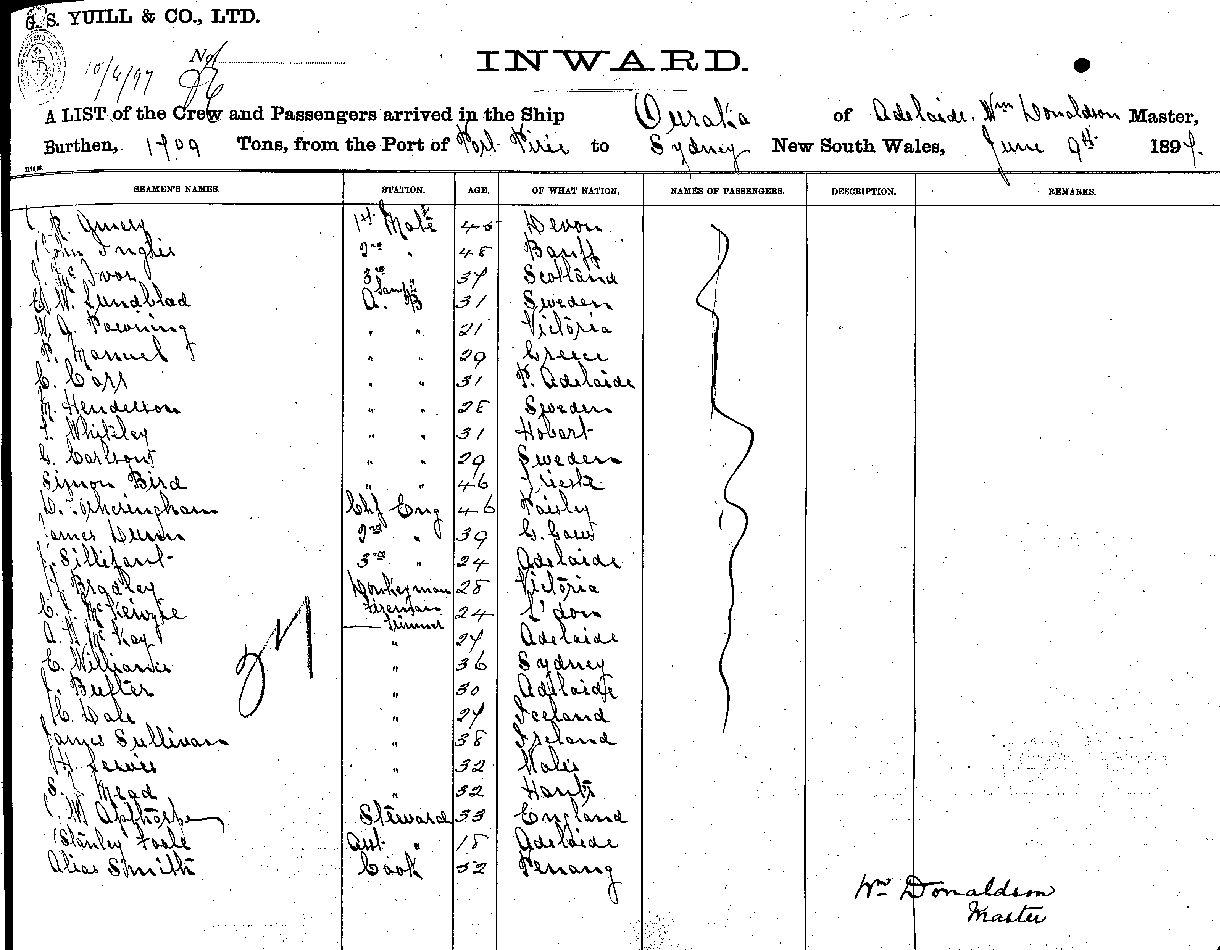 G. S. YUILL & CO., LTD.
No. 96
10/6/97
INWARD.
A LIST of the Crew and Passengers arrived in the Ship Ouraka of Adelaide, Wm Donaldson Master,
Burthen, 1709 Tons, from the Port of Port Pirie to Sydney New South Wales, June 9th 1897.
SEAMEN'S NAMES. STATION. AGE. OF WHAT NATION. NAMES OF PASSENGERS. DESCRIPTION. REMARKS.
1st Mate 45 Devon
John Inglis 2nd " 48 Banff
3rd " 37 Scotland
W. Lundblad A.B. Lamps 31 Sweden
W. G. Powning " " 21 Victoria
P. Manuel " " 29 Greece
C. Carr " " 31 P. Adelaide
M. Hendelson " " 28 Sweden
Whitley " " 31 Hobart
C. Carlson " " 29 Sweden
Simon Bird " " 46 Trieste
D. Fotheringham Chf Eng 46 Paisley
James Dunn 2nd " 39
J. Sillifant 3rd " 24 Adelaide
J. Bradley Donkeyman 28 Victoria
C. J. McKenzie Fireman Trimmer 24 L'don
A. H. McKay " 27 Adelaide
C. Williams " 36 Sydney
J. Butler " 30 Adelaide
C. Dale " 27 Iceland
James Sullivan " 38 Ireland
H. Lewis " 32 Wales
S. Mead " 32 Hants
C. W. Apthorpe Steward 33 England
Stanley Toole Ast. " 18 Adelaide
Alias Smith Cook 32 Penang
27
Wm Donaldson
Master